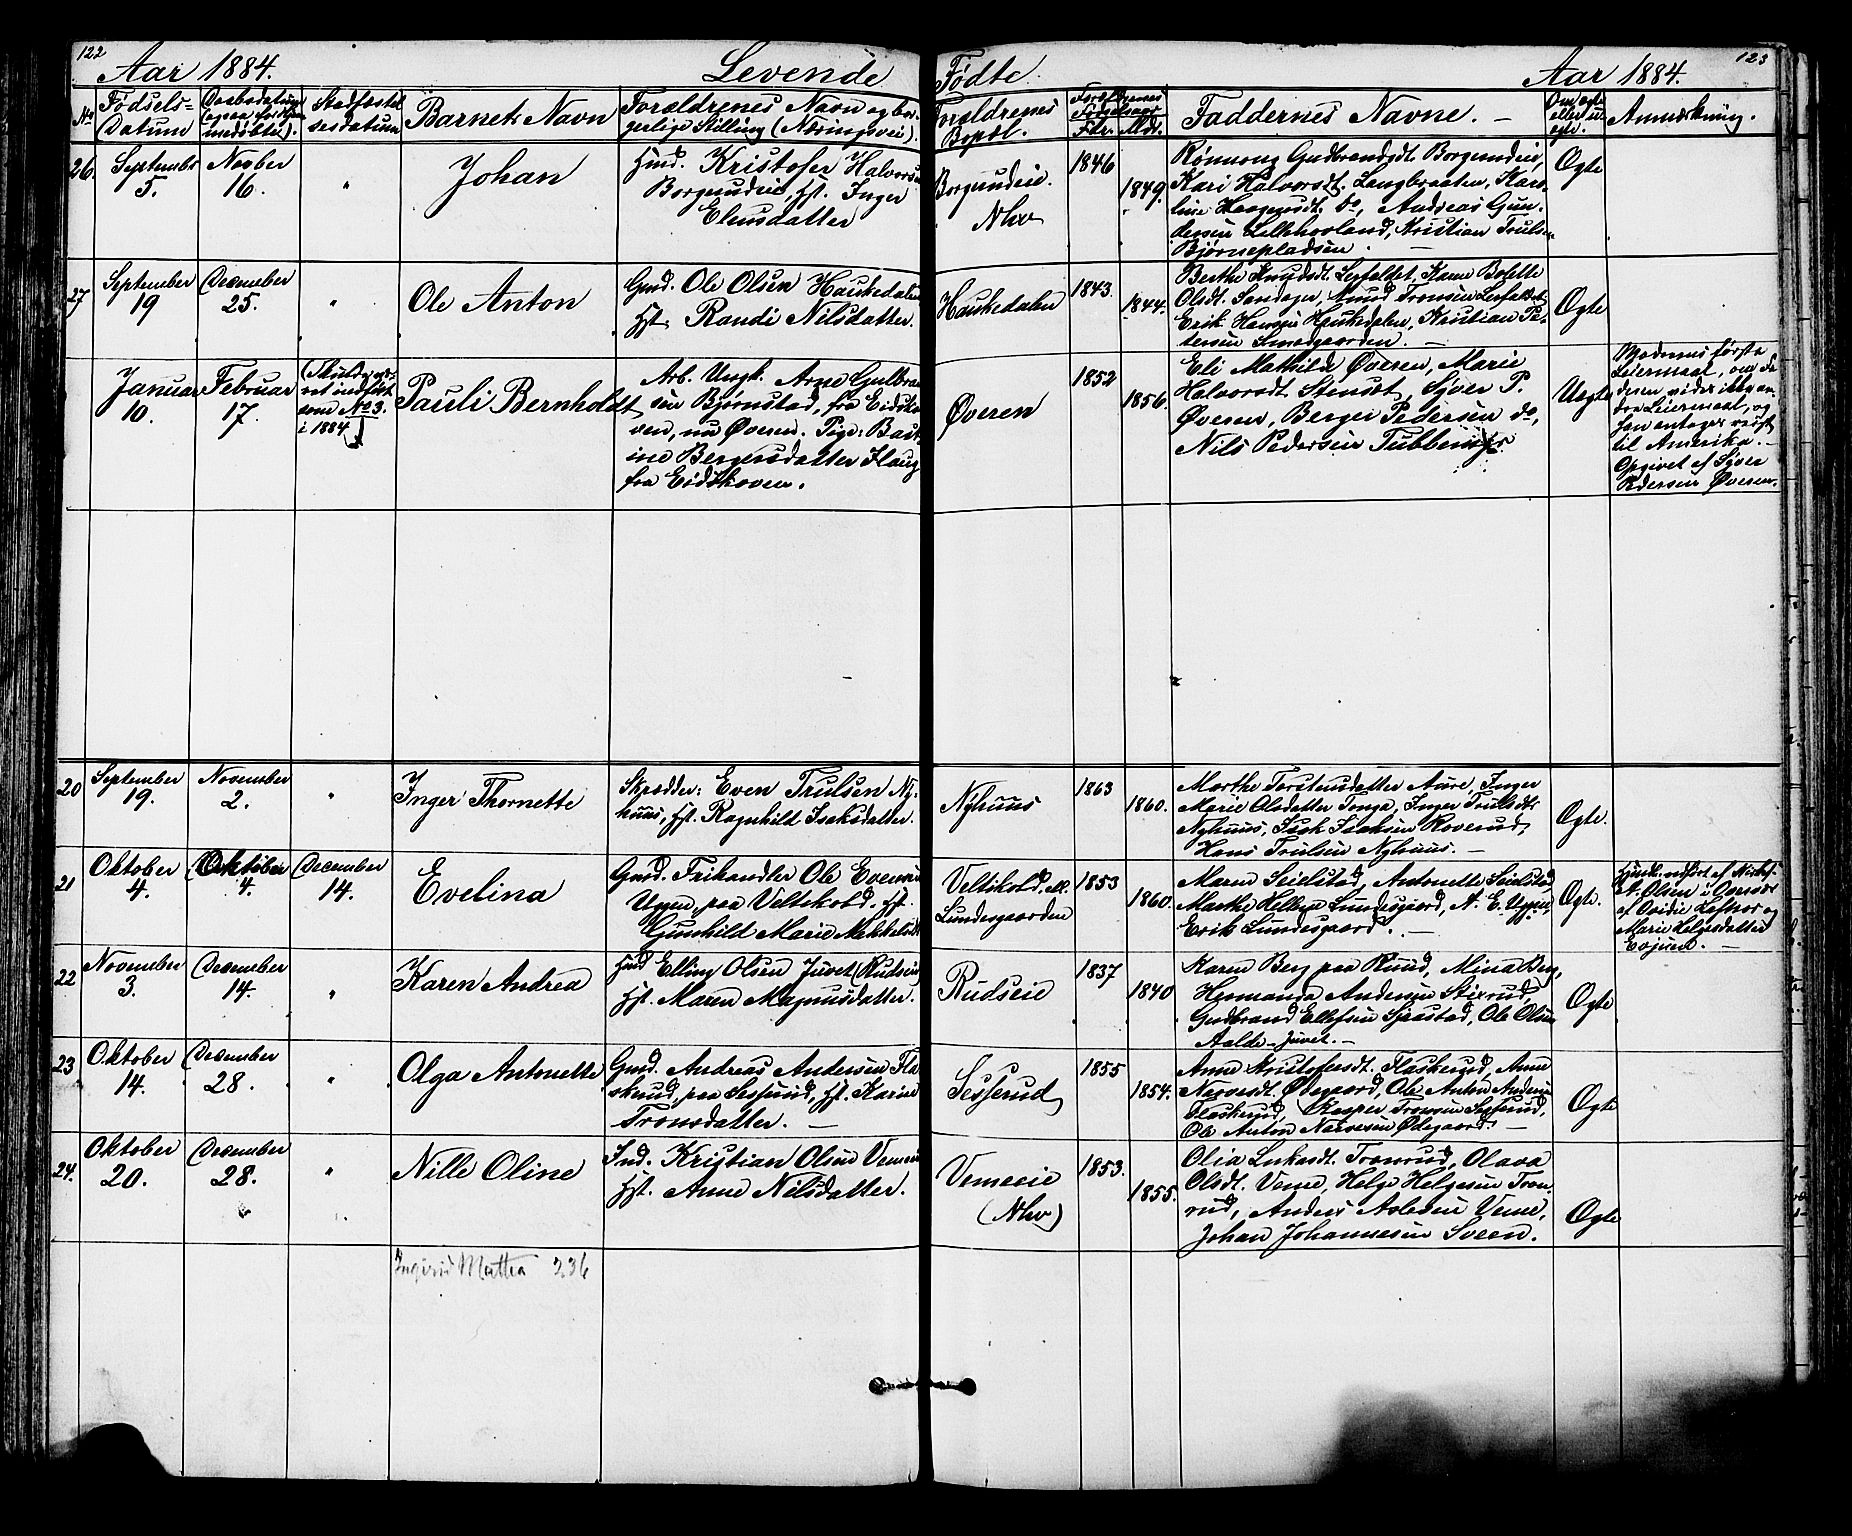 122
Aar 1884. Levende Fødte. Aar 1884.
123
No
Fødsels-
Datum
Daabsdatum
Stadfæstel
sesdatum
Barnets Navn
Forældrenes Navn og bor-
gerlige Stilling (Næringsvei).
Forældrenes
Bopæl.
Forældrenes
Fødselsaar
Fdr. Mdr.
Faddernes Navne. —
Om ægte
eller u-
ægte.
Anmærkning.
26
Septembr
5.
Novber
16.
"
Johan
Hmd. Kristofer Halvorsen
Borgundeie, Hst. Inger
Elensdatter
Borgundeie.
Nhv
1846
1849.
Rønnoug Gudbrandsdt. Borgundeie,
Kari Halvorsdt. Langbraaten, Karo-
line do, Andreas Gun-
dersen Lillehovland, Kristian Truls
Bjørnepladsen. —
Ægte
27
September
19
December
25.
"
Ole Anton
Gmd. Ole Olsen Haukedalen
Hst. Randi Nilsdatter.
Haukedalen
1843.
1844.
Berthe Knudsdt. Lerfaldet, Karen Bolette
Olsdt. Sandager, Amund Tronsen Lerfaldet
Erik Hansen Haukedalen, Kristian Pe-
dersen Smedgaarden. —
Ægte
Januar
10.
Februar
17.
(Skulde væ-
ret indført
som No 3.
i 1884
Pauli Bernholdt
Arb. Ungk. Arne Gulbrand
sen Bjørnstad, fra Eidsko-
ven, nu Øveren. Pige: Bast
ine Bergersdatter Haug
fra Eidskoven.
Øveren
1852
1856.
Eli Mathilde Øveren, Marie
Halvorsdt Stensæt, Syver P.
Øveren, Berger Pedersen do,
Nils Pedersen
Uægte
Moderens første
Leiermaal, om Fa
deren vides ikke an-
dre Leiermaal, og
han antages reist
til Amerika. —
Opgivet af Syver
Pedersen Øveren.
20
September
19.
November
2.
"
Inger Thornette
Skrædder: Even Trulsen Ny-
huus, Hst. Ragnhild Isaksdatter.
Nyhuus
1863
1860.
Marthe Torstensdatter Aure, Inger
Marie Olsdatter Tonga, Inger Trulsdt
Nyhuus, Isak Isaksen Roverud,
Hans Trulsen Nyhuus. —
Ægte.
21
Oktober
4.
Oktober
4.
December
14.
Evelina
Gmd. Frihandler Ole Evensen
Uggen, paa Veltikold. Hst.
Gunhild Marie Mikkelsdt
Veltikold. ell.
Lundesgaarden
1853
1860.
Maren Seielstad, Antonette Seielstad,
Marthe Helene Lundesgaard, A. E. Uggen,
Erik Lundesgaard. —
Ægte.
A. Olsen i Overvær
af Ovidie Lafteer og
Marie Helgesdatter
22
November
3.
December
14.
"
Karen Andrea
Hmd Elling Olsen Juvet (Rudseie)
Hst. Maren Magnusdatter.
Rudseie
1837
1840
Karen Berg paa Ruud, Mina Berg,
Hermanda Andersen Stixrud,
Gudbrand Ellefsen Sjaastad, Ole Olsen
Aalde-Juvet. —
Ægte
23
Oktober
14.
December
28.
"
Olga Antonette
Gmd. Andreas Andersen Fla
skerud, paa Sesserud, Hst. Karine
Tronsdatter. —
Sesserud
1855
1854.
Anne Kristofersdt. Flaskerud, Anne
Narvesdt. Ødegaard, Ole Anton Anders
Flaskerud, Kasper Tronsen Sesserud,
Ole Anton Narvesen Ødegaard. —
Ægte
24.
Oktober
20.
December
28.
"
Nille Oline
Ind. Kristian Olsen Vemeeie
Hst. Anne Nilsdatter.
Vemeeie
(Nhv)
1853.
1855.
Olia Tronrud, Olava
Olsdt. Veme, Helge Helgesen Tron-
rud, Anders Aslesen Veme,
Johan Johannesen Sveen.
Ægte
Ingerid Mathea 236